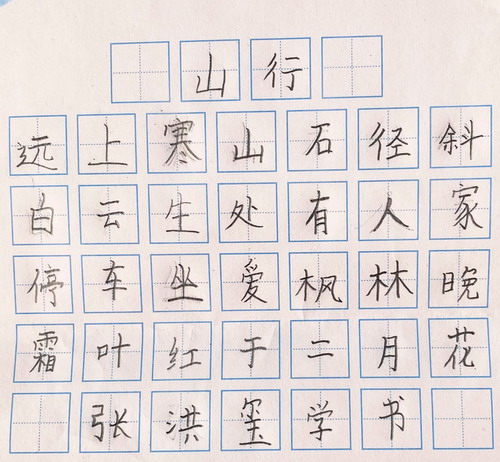 山行
远上寒山石径斜
白云生处有人家
停车坐爱枫林晚
霜叶红于二月花
张洪玺学书